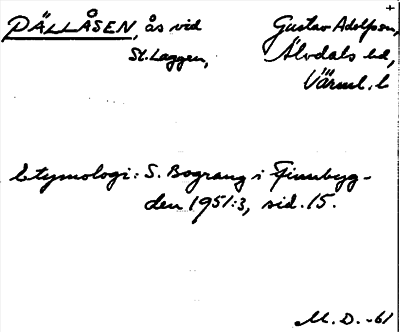 PÄLLÅSEN, ås vid
St. Laggen,
Gustav Adolfsson,
Älvdals hd,
Värml. l.
Etymologi: S. Bograng i Finnbyg-
den 1951:3, sid. 15.
M. D. -61